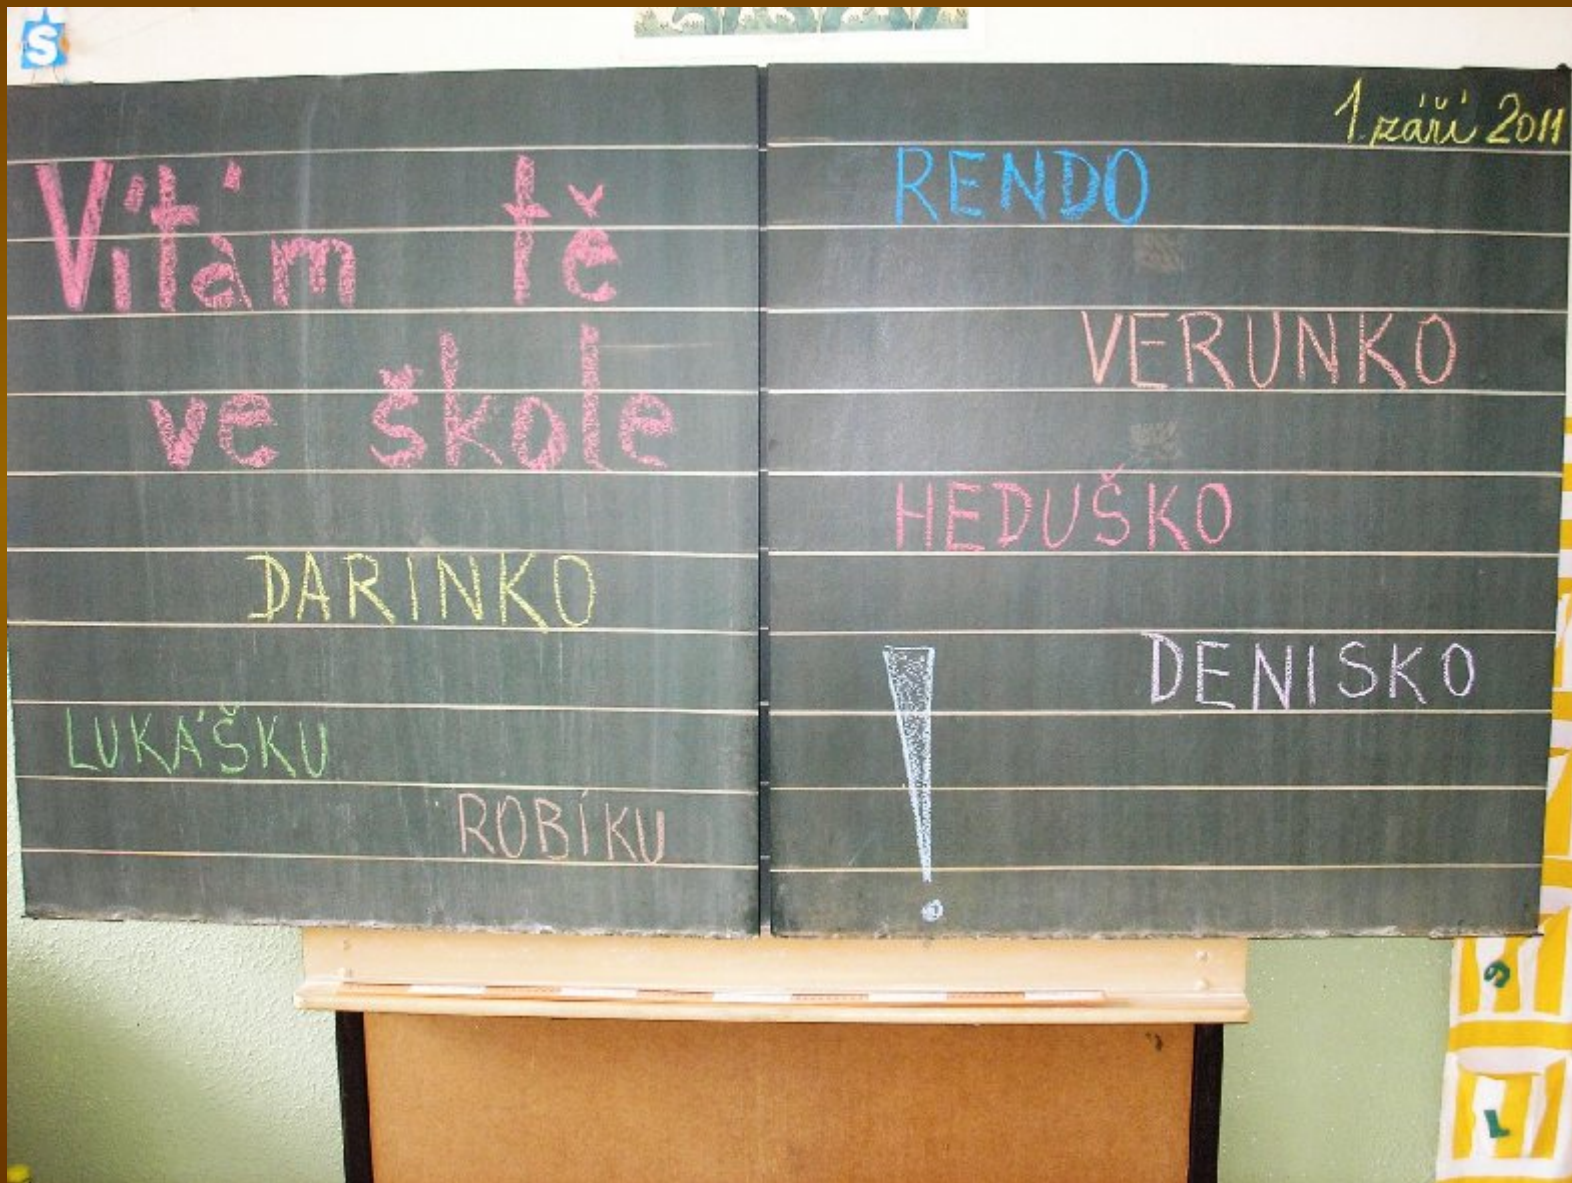 S
Vítám tě
ve škole
DARINKO
LUKÁŠKU
ROBÍKU
1. září 2011
RENDO
VERUNKO
HEDUŠKO
DENISKO
!
9
L